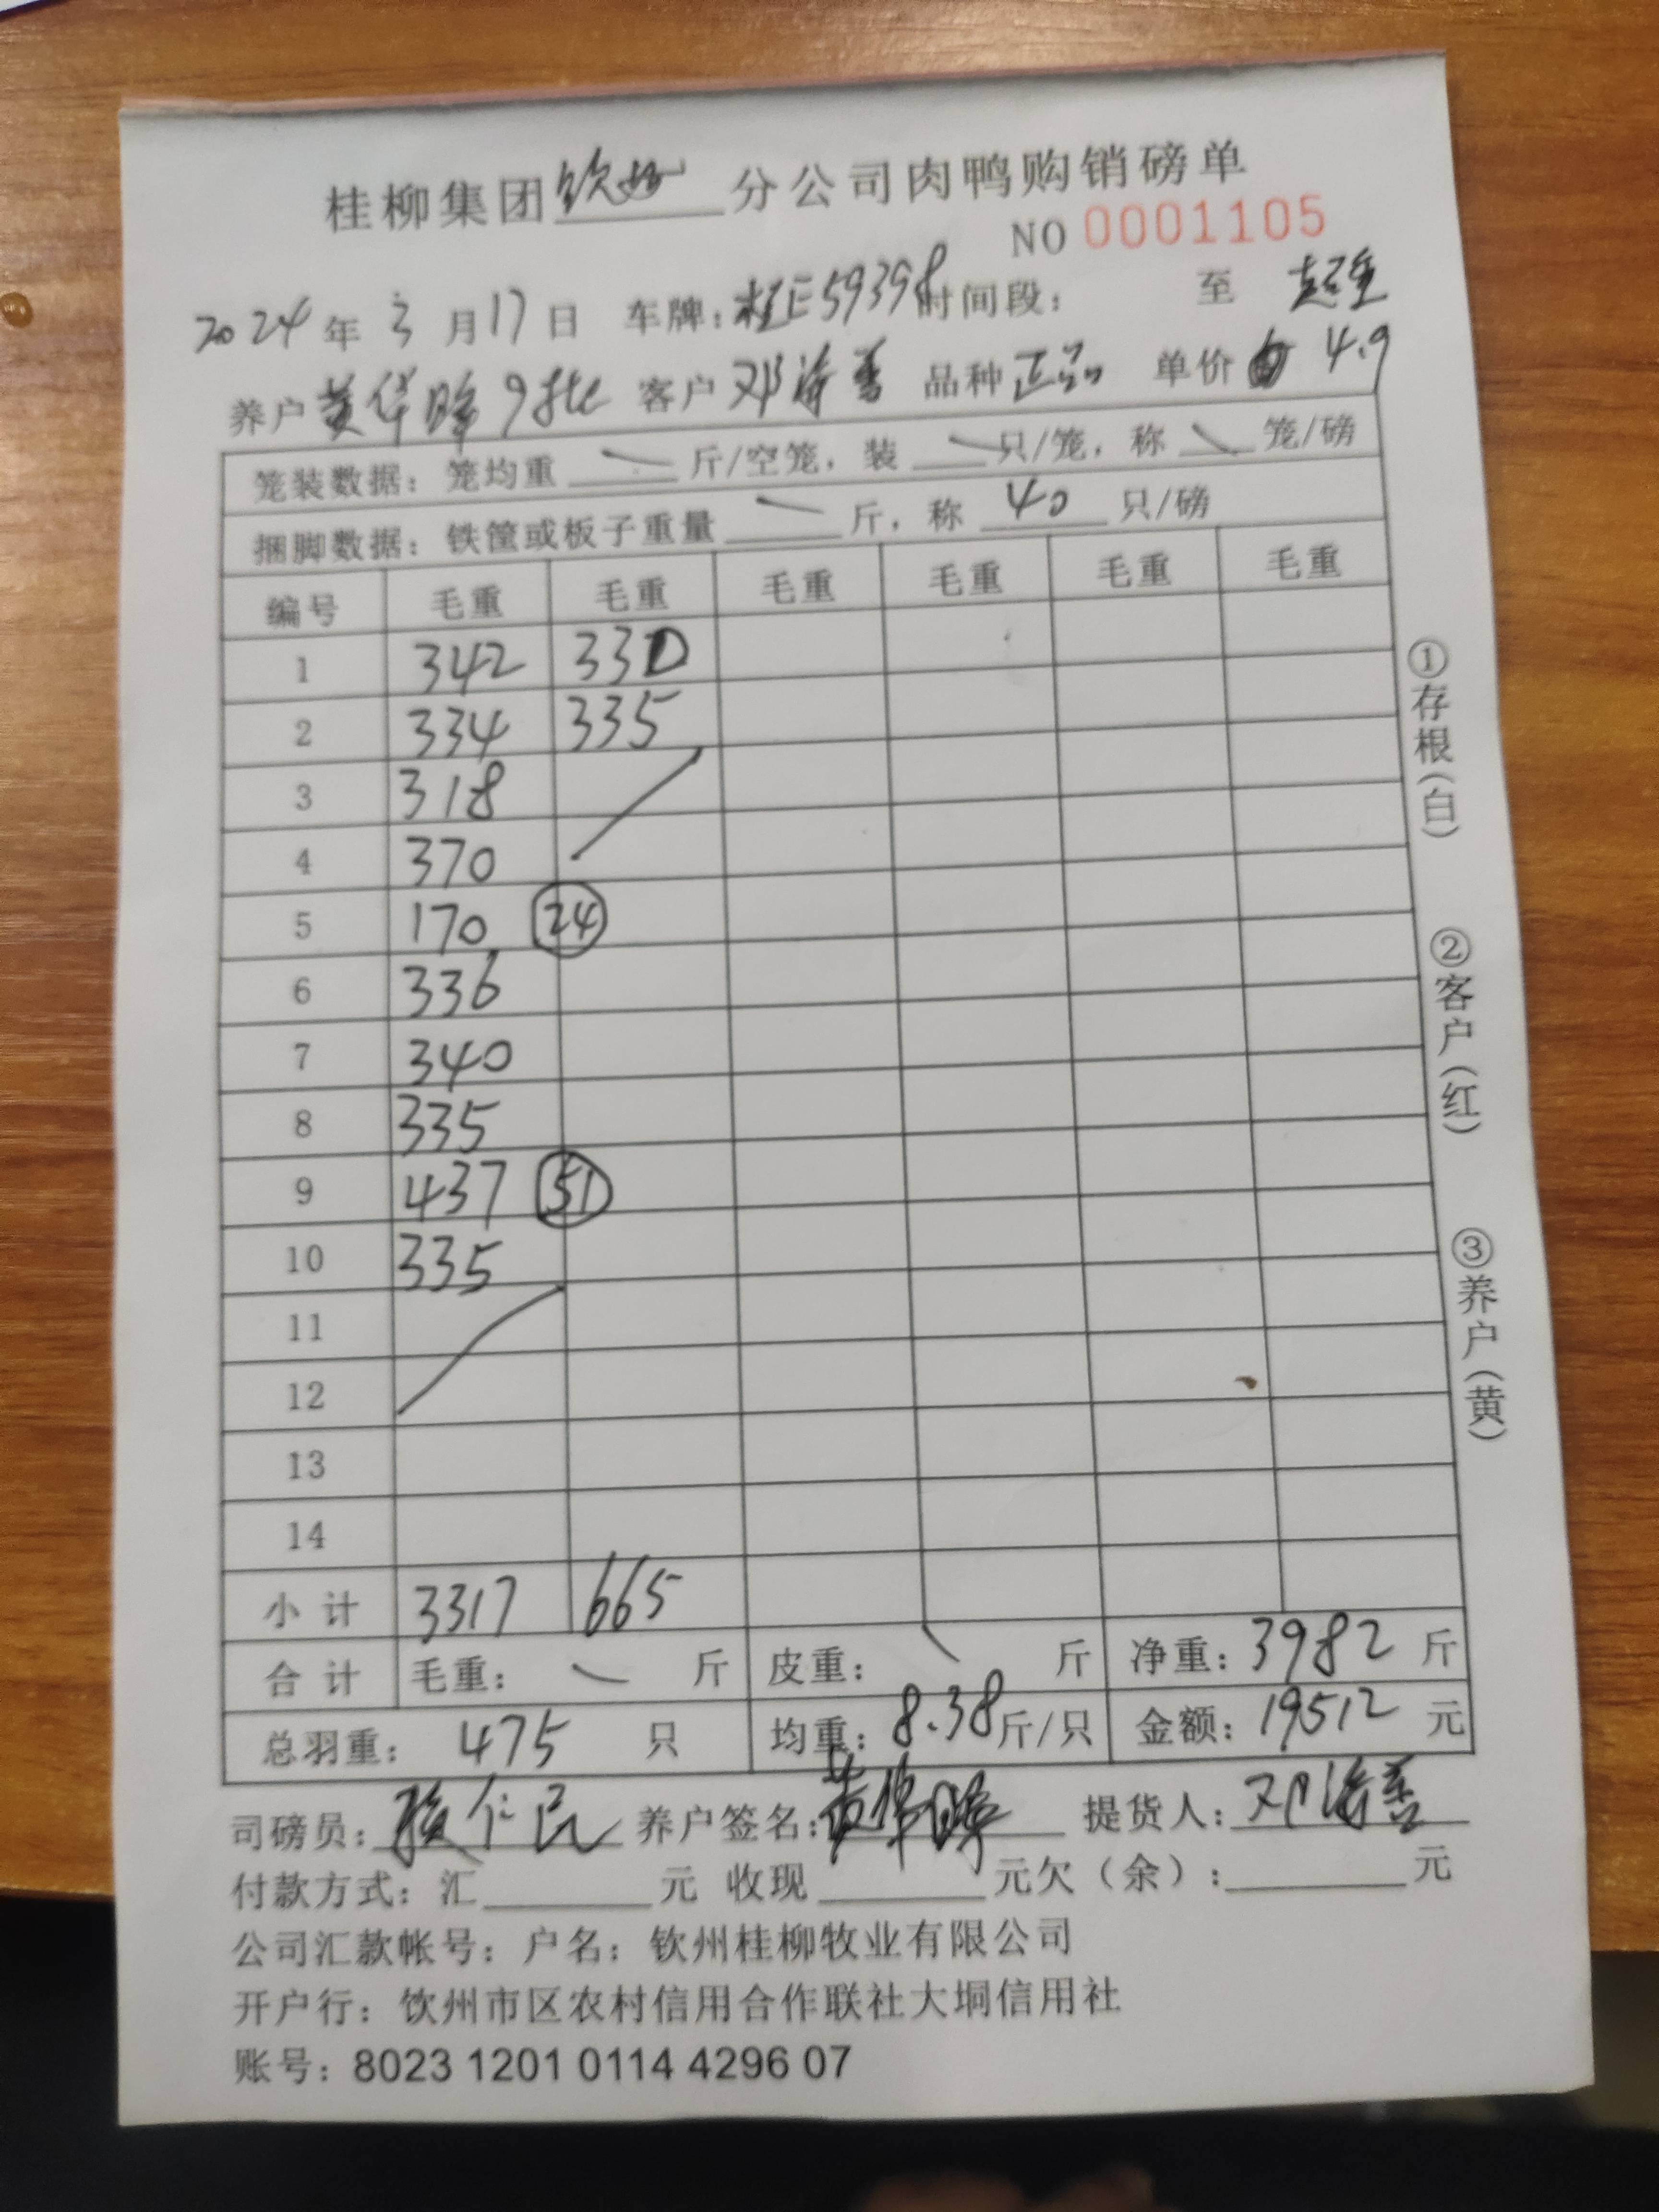 桂柳集团钦州分公司肉鸭购销磅单
NO 0001105
2024年3月17日 车牌:桂E59398时间段: 至 超重
养户黄华晖9批 客户邓海善 品种正品 单价 4.9
笼装数据:笼均重 斤/空笼,装 只/笼,称 笼/磅
捆脚数据:铁筐或板子重量 斤,称 40 只/磅
编号 毛重 毛重 毛重 毛重 毛重 毛重
1 342 330
2 334 335
3 318
4 370
5 170 24
6 336
7 340
8 335
9 437 51
10 335
11
12
13
14
小计 3317 665
合计 毛重: 斤 皮重: 斤 净重:3982 斤
总羽重: 475 只 均重:8.38斤/只 金额:19512 元
司磅员: 仁民 养户签名:黄华晖 提货人:邓海善
付款方式:汇 元 收现 元欠(余): 元
公司汇款帐号:户名:钦州桂柳牧业有限公司
开户行:钦州市区农村信用合作联社大垌信用社
账号:8023 1201 0114 4296 07
①存根(白)
②客户(红)
③养户(黄)